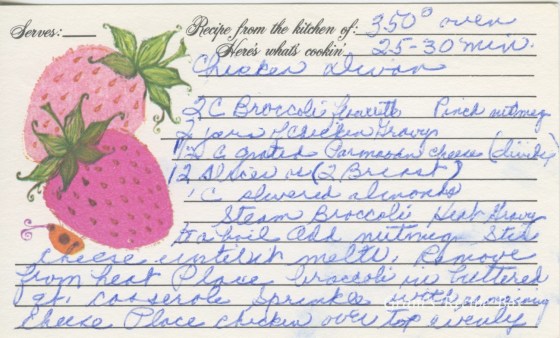 Serves:
Recipe from the kitchen of: 350° oven
Here's what's cookin' 25-30 min.
Chicken divan
2 C Broccoli flowrette Pinch nutmeg
2 jars of Chicken Gravy
1/2 C grated Parmesan cheese (divide)
12 slices or (2 Breast)
C slivered almonds
Steam Broccoli Heat Gravy
to a boil add nutmeg Stir
cheese until it melts. Remove
from heat Place broccoli in buttered
qt. casserole Sprinkle with remaining
cheese Place chicken over top evenly